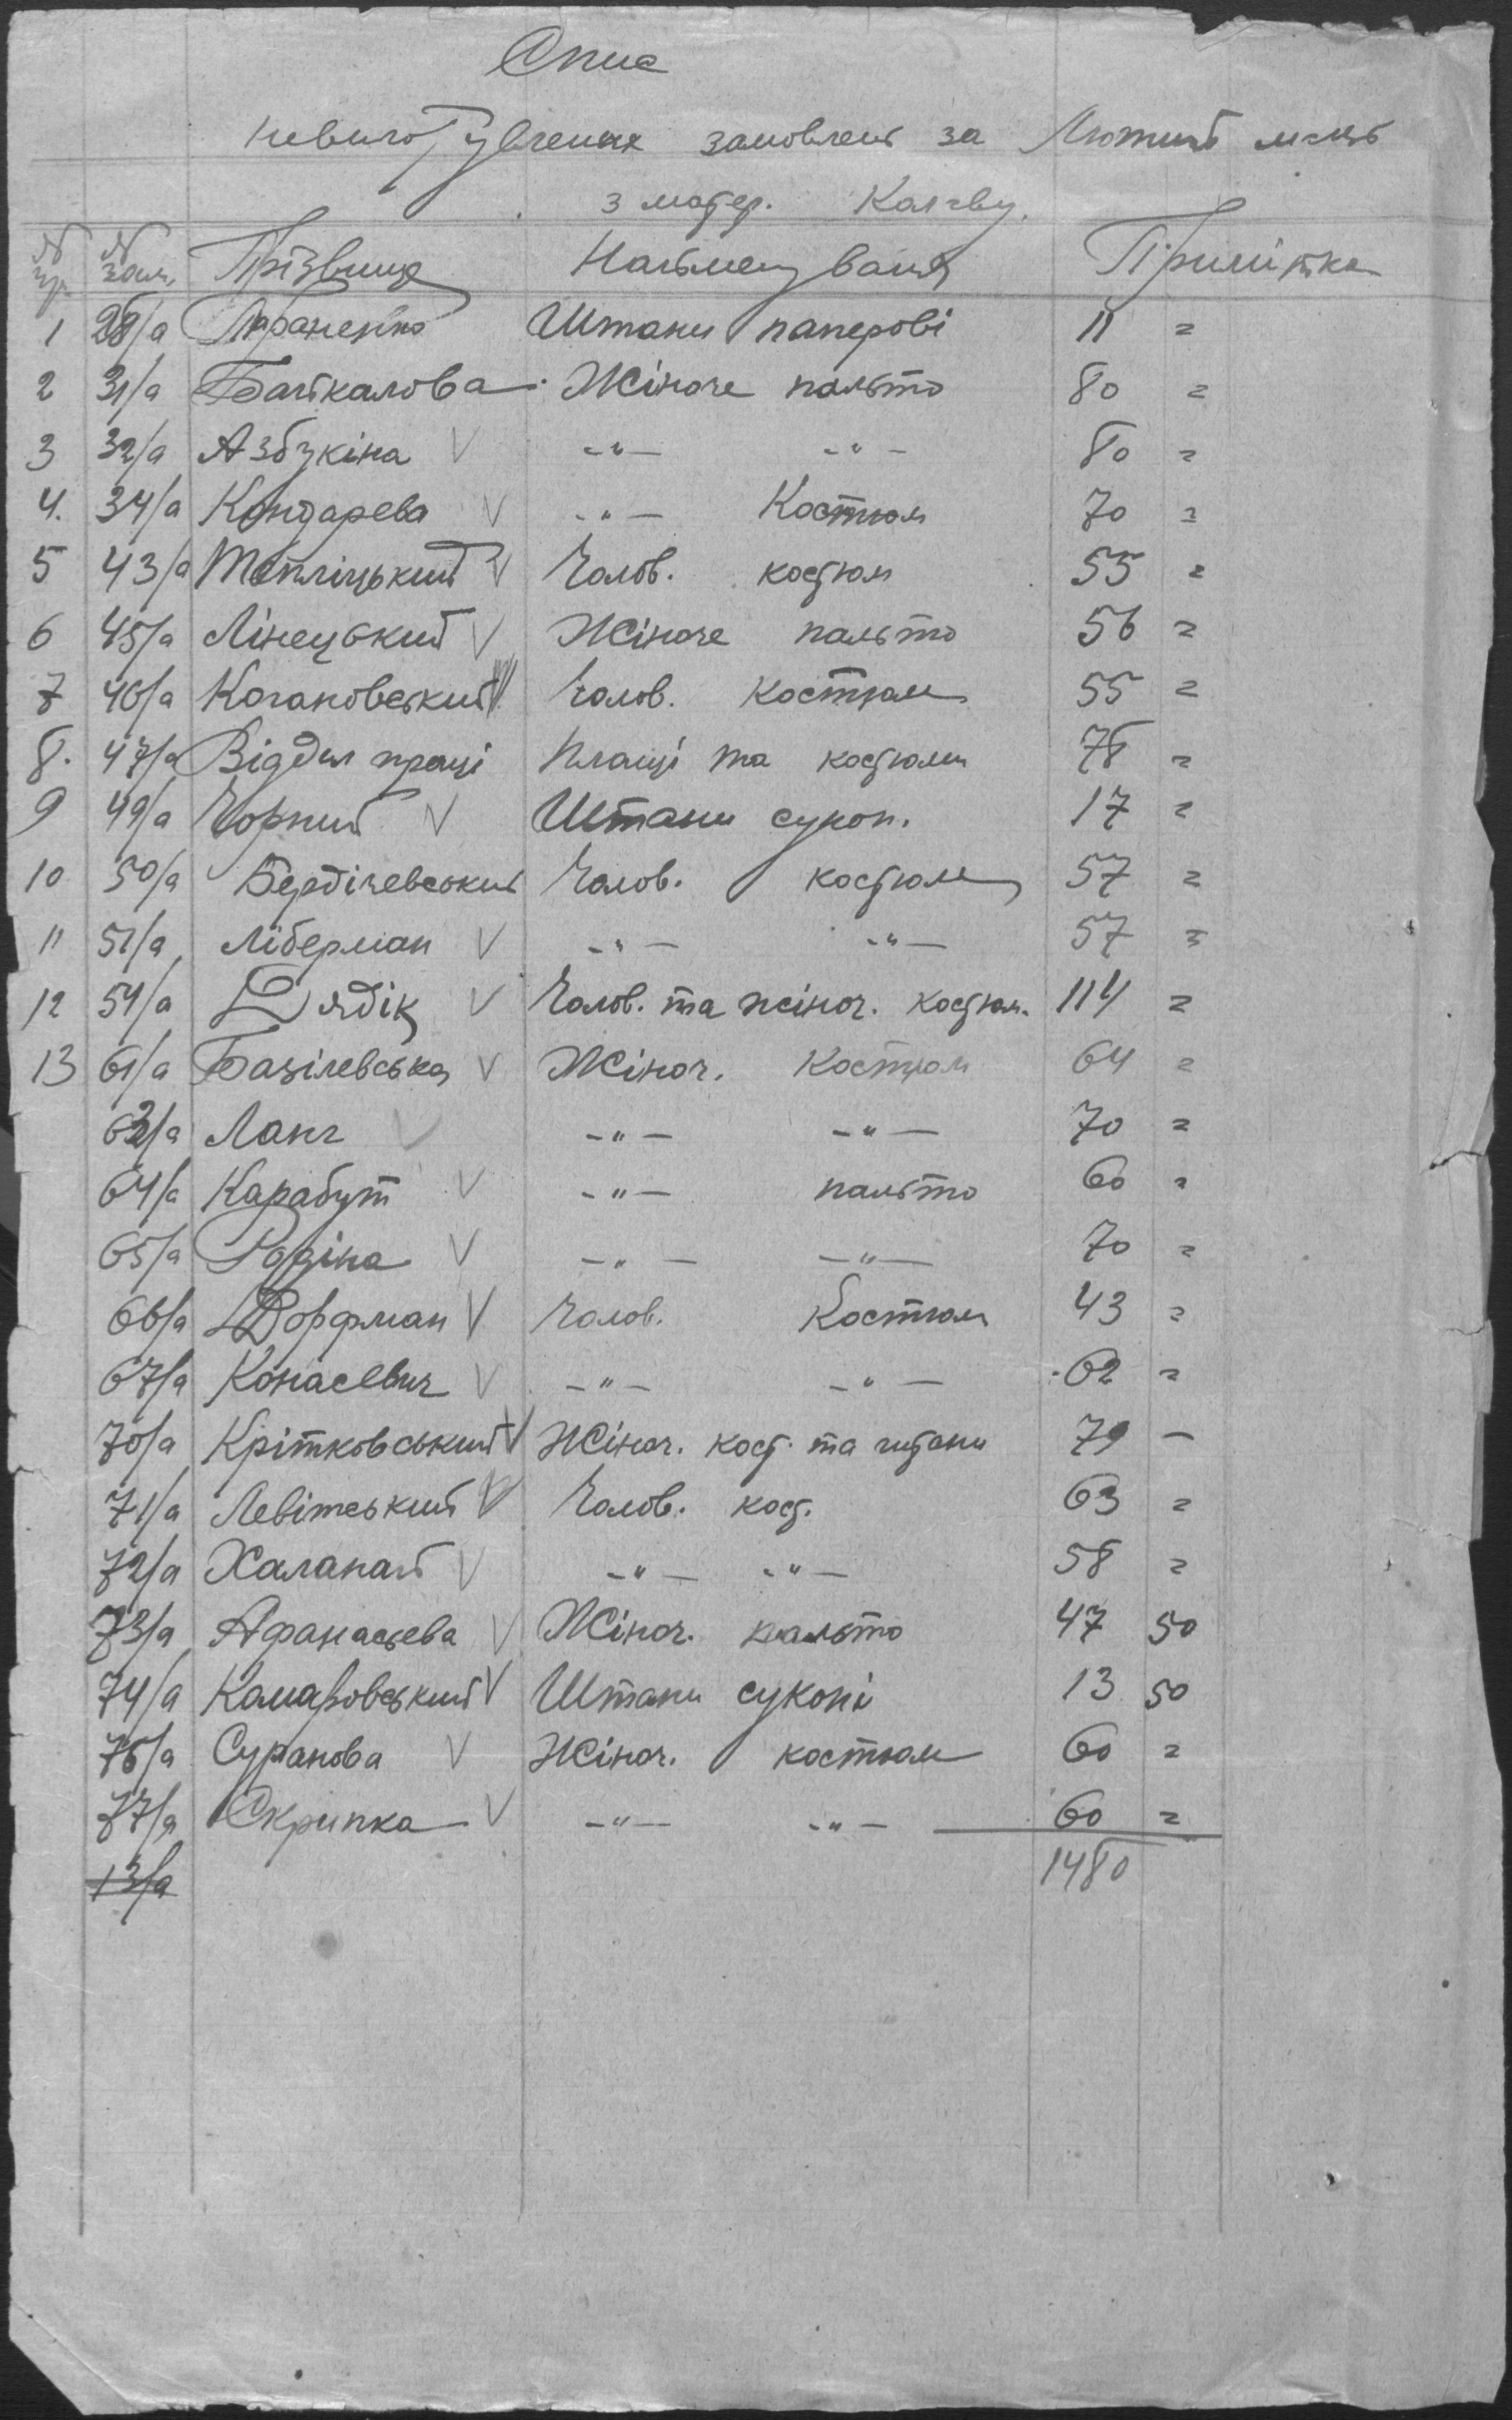 Опис
невиготувлених замовлень за Лютий м-ць
з матер.
№ № зам. Прізвище Найменування Примітка
1 28/а Параненко Штани паперові 11 =
2 31/а Байкалова Жіноче пальто 80 =
3 32/а Азбукіна V -"- -"- 80 =
4. 34/а Кондарева V -"- Костюм 70 =
5 43/а Тепліцький V Чолов. костюм 55 =
6 45/а Лінецький V Жіноче пальто 56 =
7 46/а Когановський V Чолов. Костюм 55 =
8. 47/а Відділ праці Плащі та костюми 78 =
9 49/а Чорний V Штани сукон. 17 =
10 50/а Бердічевський Чолов. костюм 57 =
11 51/а Ліберман V -"- -"- 57 =
12 54/а Дядік V Чолов. та жіноч. костюм. 114 =
13 61/а Базілевська V Жіноч. Костюм 64 =
62/а Ланг V -"- -"- 70 =
64/а Карабут V -"- пальто 60 =
65/а Родіна V -"- -"- 70 =
66/а Дорфман V Чолов. Костюм 43 =
67/а Конасевич V -"- -"- 62 =
70/а Крітковський V Жіноч. кост. та штани 79 -
71/а Левітський V Чолов. кост. 63 =
72/а Халапай V -"- -"- 58 =
73/а Афанасьева V Жіноч. пальто 47 50
74/а Камаровський V Штани суконі 13 50
76/а Суранова V Жіноч. костюм 60 =
77/а Скрипка V -"- -"- 60 =
13/а 1480